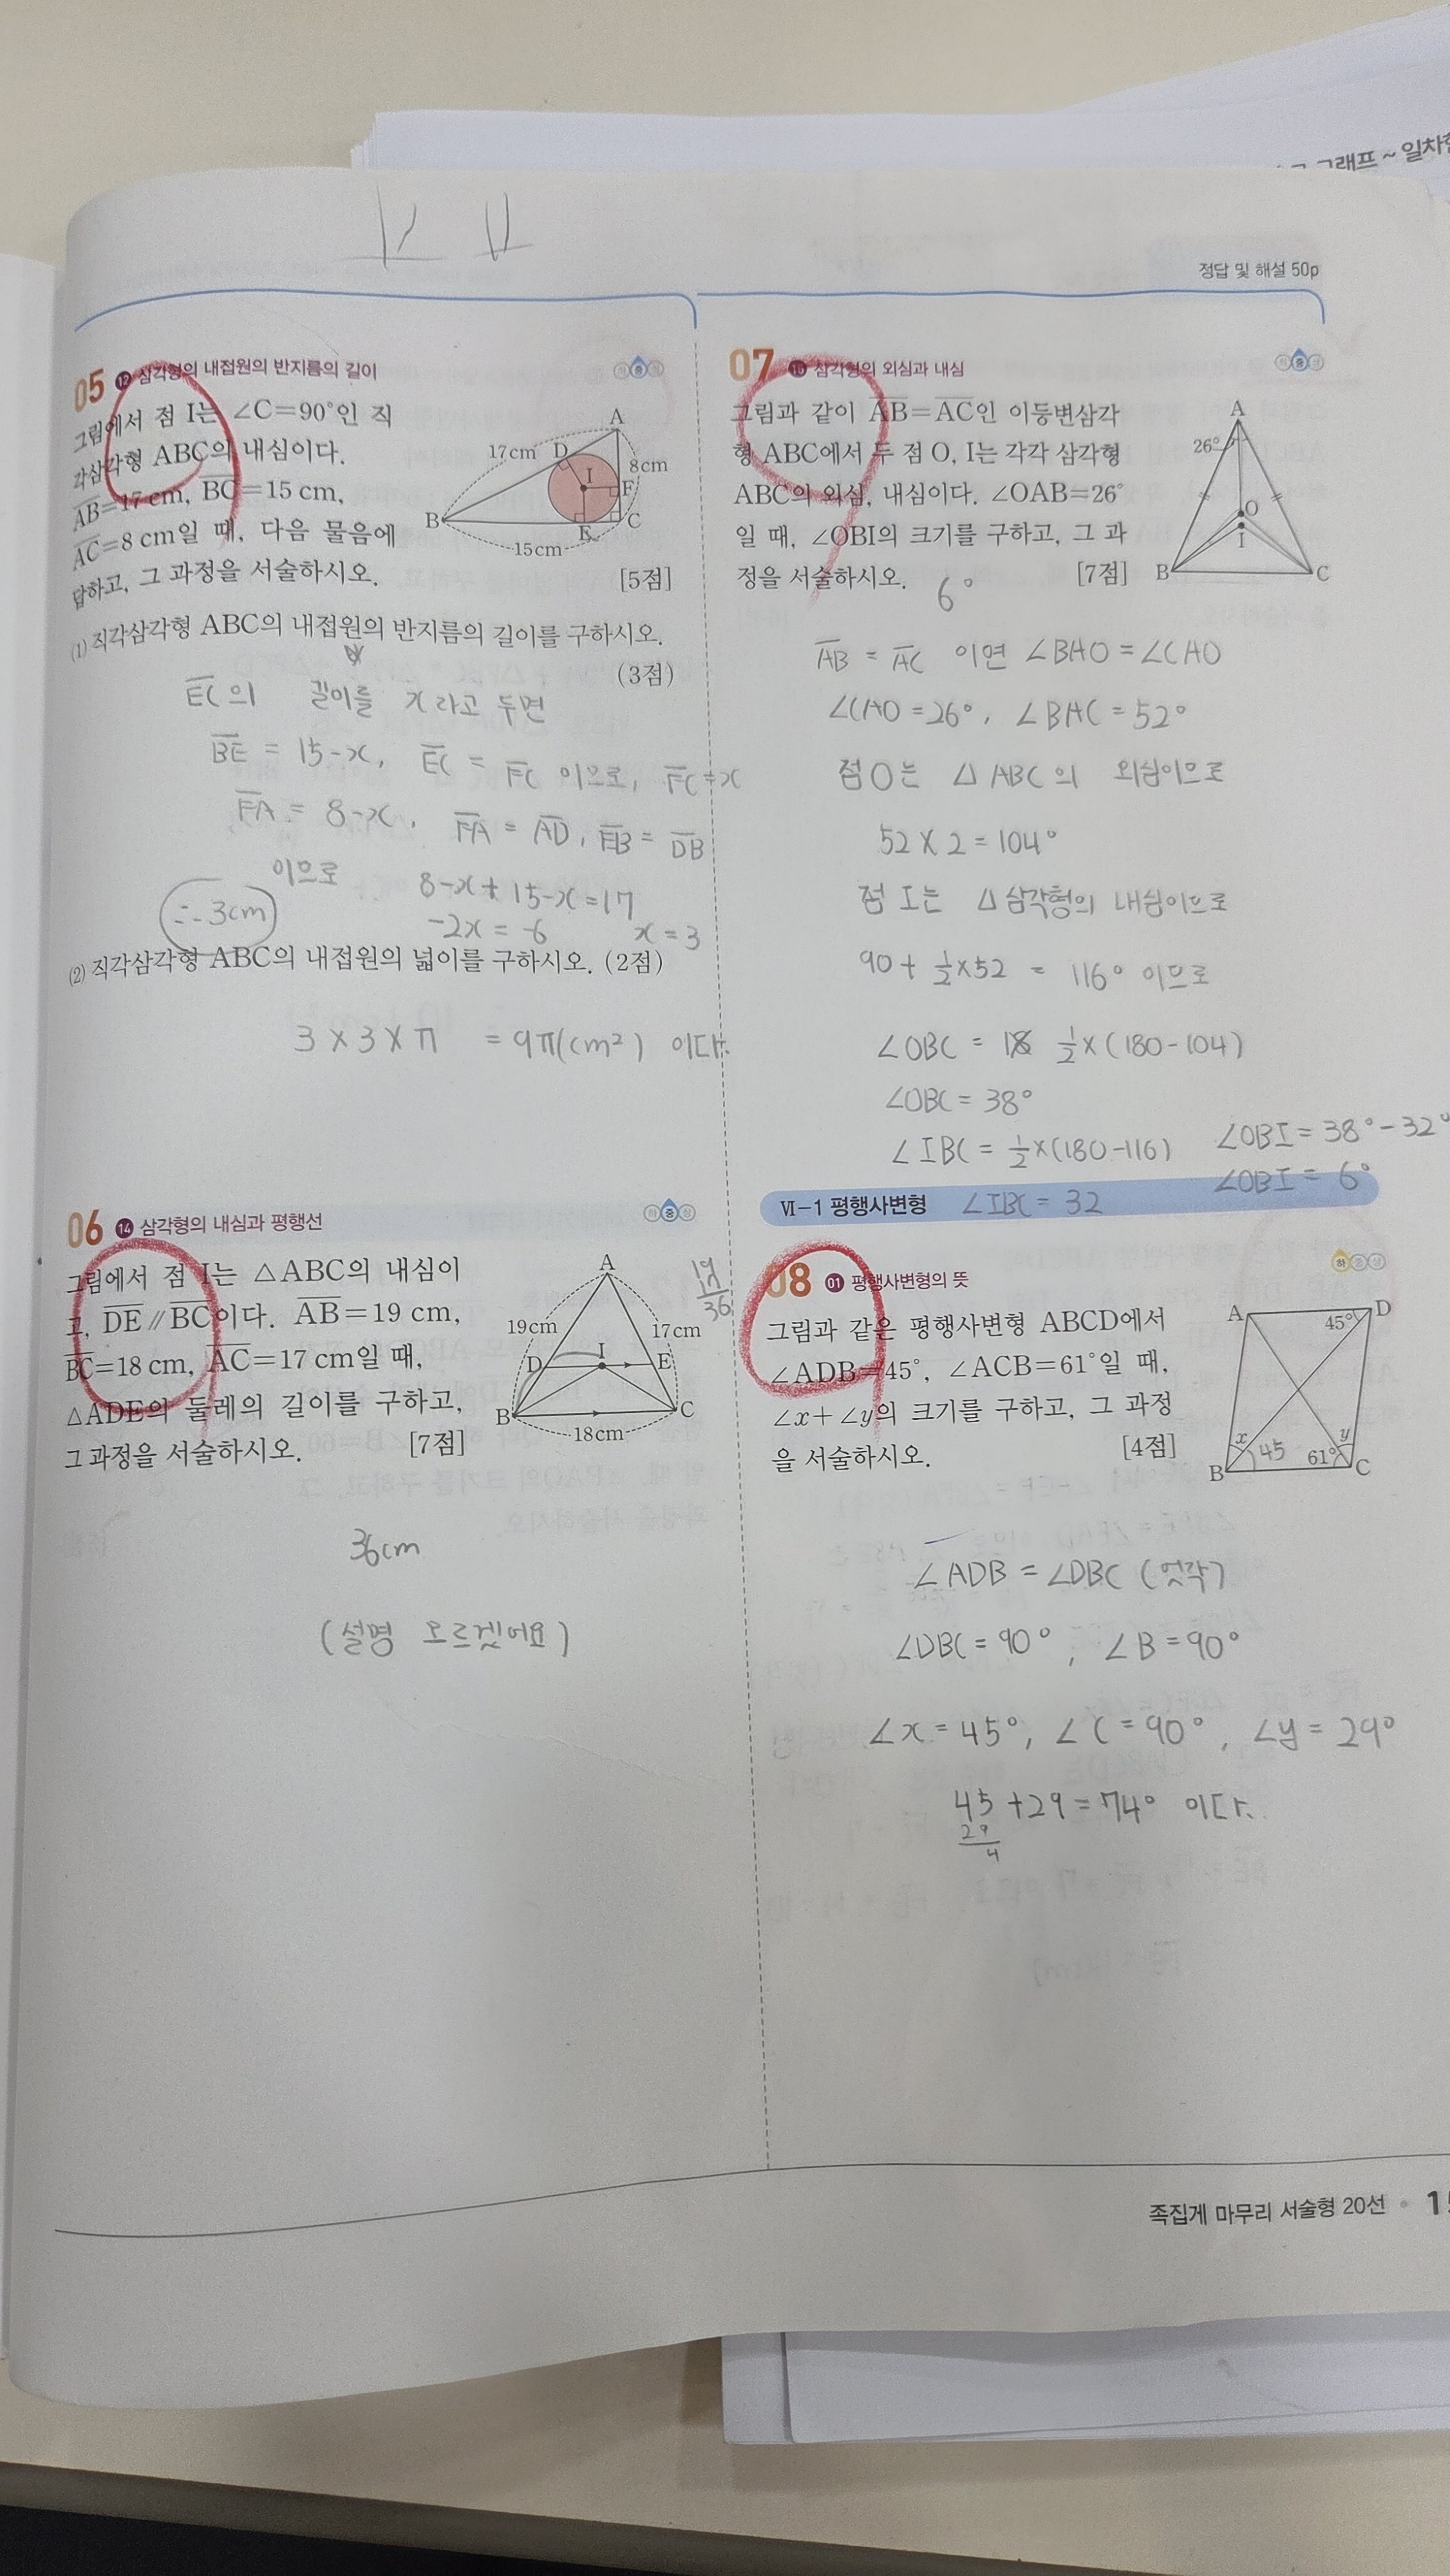 그래프 ~ 일차함
정답 및 해설 50p
05 12 삼각형의 내접원의 반지름의 길이
하 중 상
그림에서 점 I는 ∠C=90°인 직
각삼각형 ABC의 내심이다.
AB=17 cm, BC=15 cm,
AC=8 cm일 때, 다음 물음에
답하고, 그 과정을 서술하시오.
[5점]
A
17cm
D
8cm
I
F
B
E
C
15cm
(1) 직각삼각형 ABC의 내접원의 반지름의 길이를 구하시오.
(3점)
EC의 길이를 x라고 두면
BE = 15-x, EC = FC 이므로, FC=x
FA = 8-x, FA = AD, EB = DB
이므로 8-x+15-x=17
∴ 3cm
-2x = -6 x=3
(2) 직각삼각형 ABC의 내접원의 넓이를 구하시오. (2점)
3×3×π = 9π(cm²) 이다.
06 14 삼각형의 내심과 평행선
하 중 상
그림에서 점 I는 △ABC의 내심이
고, DE∥BC이다. AB=19 cm,
BC=18 cm, AC=17 cm일 때,
△ADE의 둘레의 길이를 구하고,
그 과정을 서술하시오.
[7점]
A
19cm
17cm
D
I
E
B
C
18cm
19
17
36
36cm
(설명 모르겠어요)
07
삼각형의 외심과 내심
하 중 상
그림과 같이 AB=AC인 이등변삼각
형 ABC에서 두 점 O, I는 각각 삼각형
ABC의 외심, 내심이다. ∠OAB=26°
일 때, ∠OBI의 크기를 구하고, 그 과
정을 서술하시오.
[7점]
A
26°
O
I
B
C
6°
AB = AC 이면 ∠BAO=∠CAO
∠CAO=26°, ∠BAC=52°
점 O는 △ABC의 외심이므로
52×2=104°
점 I는 △삼각형의 내심이므로
90+½×52 = 116° 이므로
∠OBC = 18 ½×(180-104)
∠OBC=38°
∠IBC = ½×(180-116)
∠IBC = 32
∠OBI=38°-32°
∠OBI= 6°
Ⅵ-1 평행사변형
08 01 평행사변형의 뜻
하 중 상
그림과 같은 평행사변형 ABCD에서
∠ADB=45°, ∠ACB=61°일 때,
∠x+∠y의 크기를 구하고, 그 과정
을 서술하시오.
[4점]
A
D
45°
x
45
61°
y
B
C
∠ADB = ∠DBC (엇각)
∠DBC=90°, ∠B=90°
∠x=45°, ∠C=90°, ∠y=29°
45+29=74° 이다.
29
4
족집게 마무리 서술형 20선